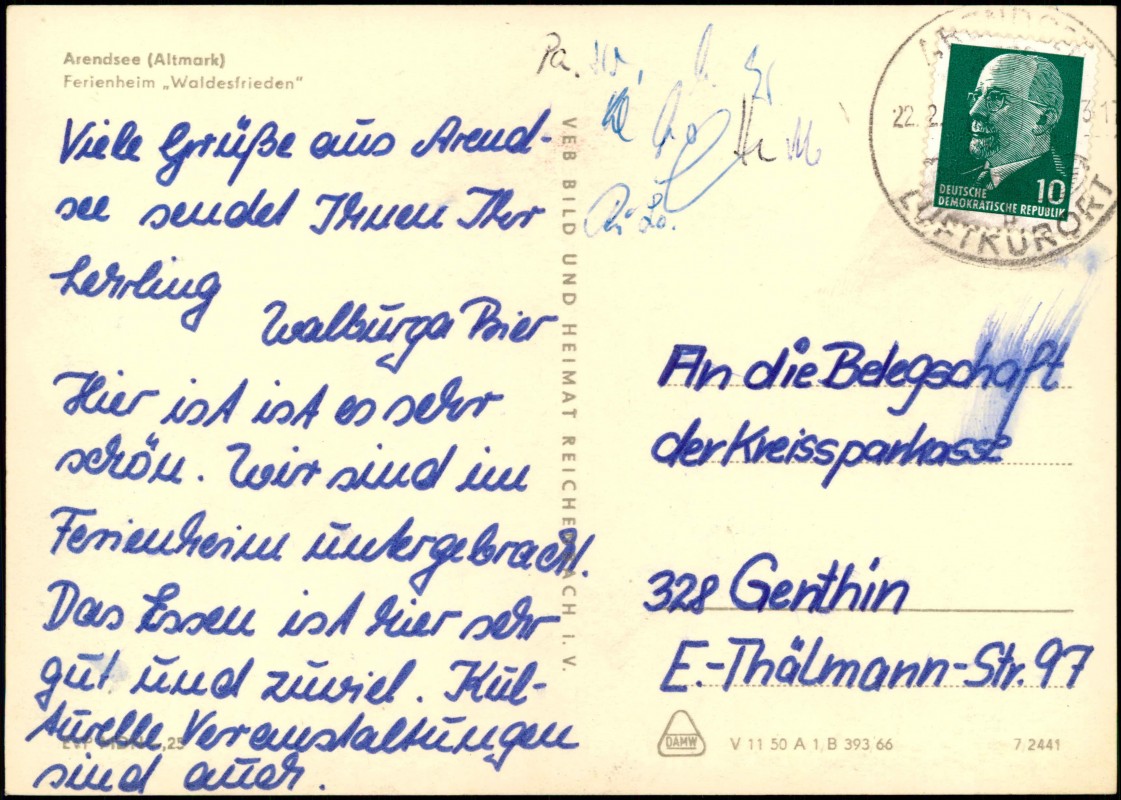 Arendsee (Altmark)
Ferienheim „Waldesfrieden“
Viele Grüße aus Arend-
see sendet Ihnen Ihr
Lehrling
Walburga Bier
Hier ist ist es sehr
schön. Wir sind im
Ferienheim untergebracht.
Das Essen ist hier sehr
gut und zuviel. Kul-
turelle Veranstaltungen
sind auch.
VEB BILD UND HEIMAT REICHENBACH I. V.
Pa.
ARENDSEE
22. 2.
LUFTKURORT
DEUTSCHE
DEMOKRATISCHE REPUBLIK
10
An die Belegschaft
der Kreissparkasse
328 Genthin
E.-Thälmann-Str. 97
DAMW
V 11 50 A 1 B 393 66
7 2441